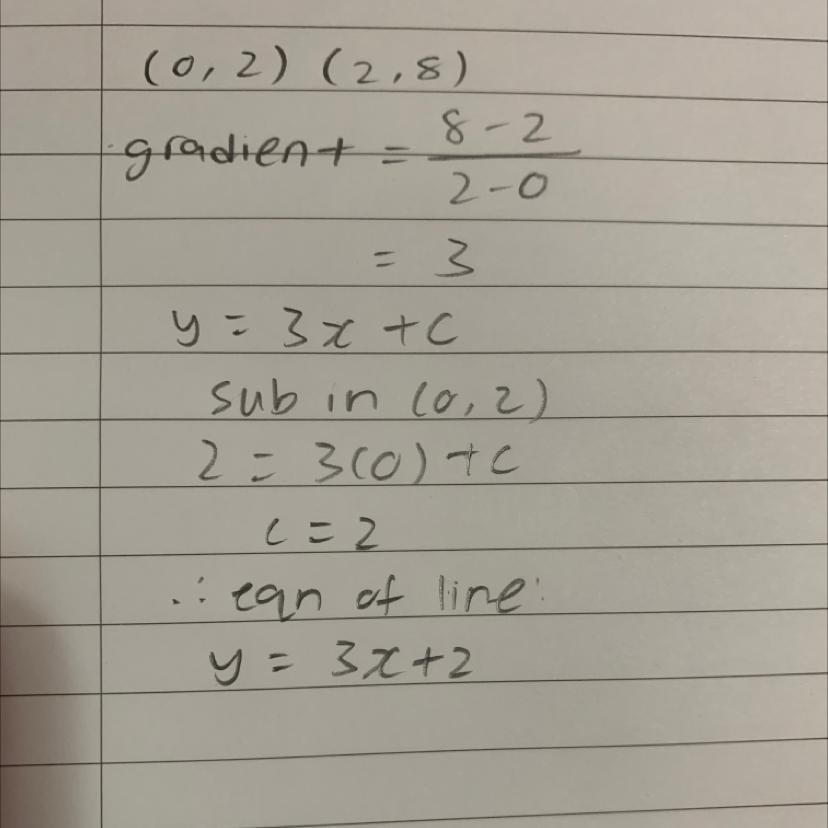 (0, 2) (2, 8)
gradient = 8-2
2-0
= 3
y = 3x + c
sub in (0, 2)
2 = 3(0) + c
c = 2
∴ eqn of line:
y = 3x + 2